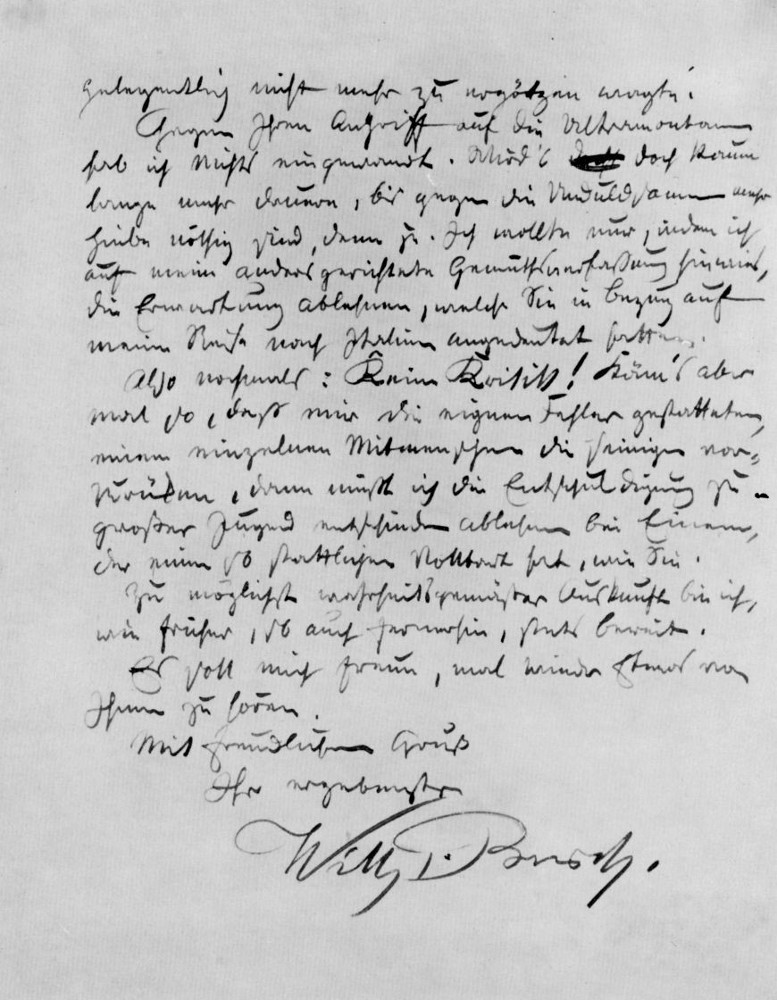 gelegentlich nicht mehr zu ergötzen wagte.
Gegen Ihren Angriff auf die Ultramontanen
hab ich Nichts eingewandt. Würd's doch kaum
lange mehr dauern, bis gegen die Unduldsamen mehr
Hiebe nöthig sind, denn je. Ich wollte nur, indem ich
auf meine anders gerichtete Gemüthsverfaßung hinwies,
die Erwartung ablehnen, welche Sie in Bezug auf
meine Reise nach Italien angedeutet hatten.
Also nochmals: Keine Kritik! Käm's aber
mal so, daß mir die eignen Fehler gestatteten,
einem einzelnen Mitmenschen die seinigen vor-
zurücken, dann müßt ich die Entschuldigung zu
großer Jugend entschieden ablehnen bei Einem,
der einen so stattlichen Vollbart hat, wie Sie.
Zu möglichst wahrheitsgemäßer Auskunft bin ich,
wie früher, so auch fernerhin, stets bereit.
Es soll mich freun, mal wieder Etwas von
Ihnen zu hören.
Mit freundlichem Gruß
Ihr ergebenster
Wilh. Busch.